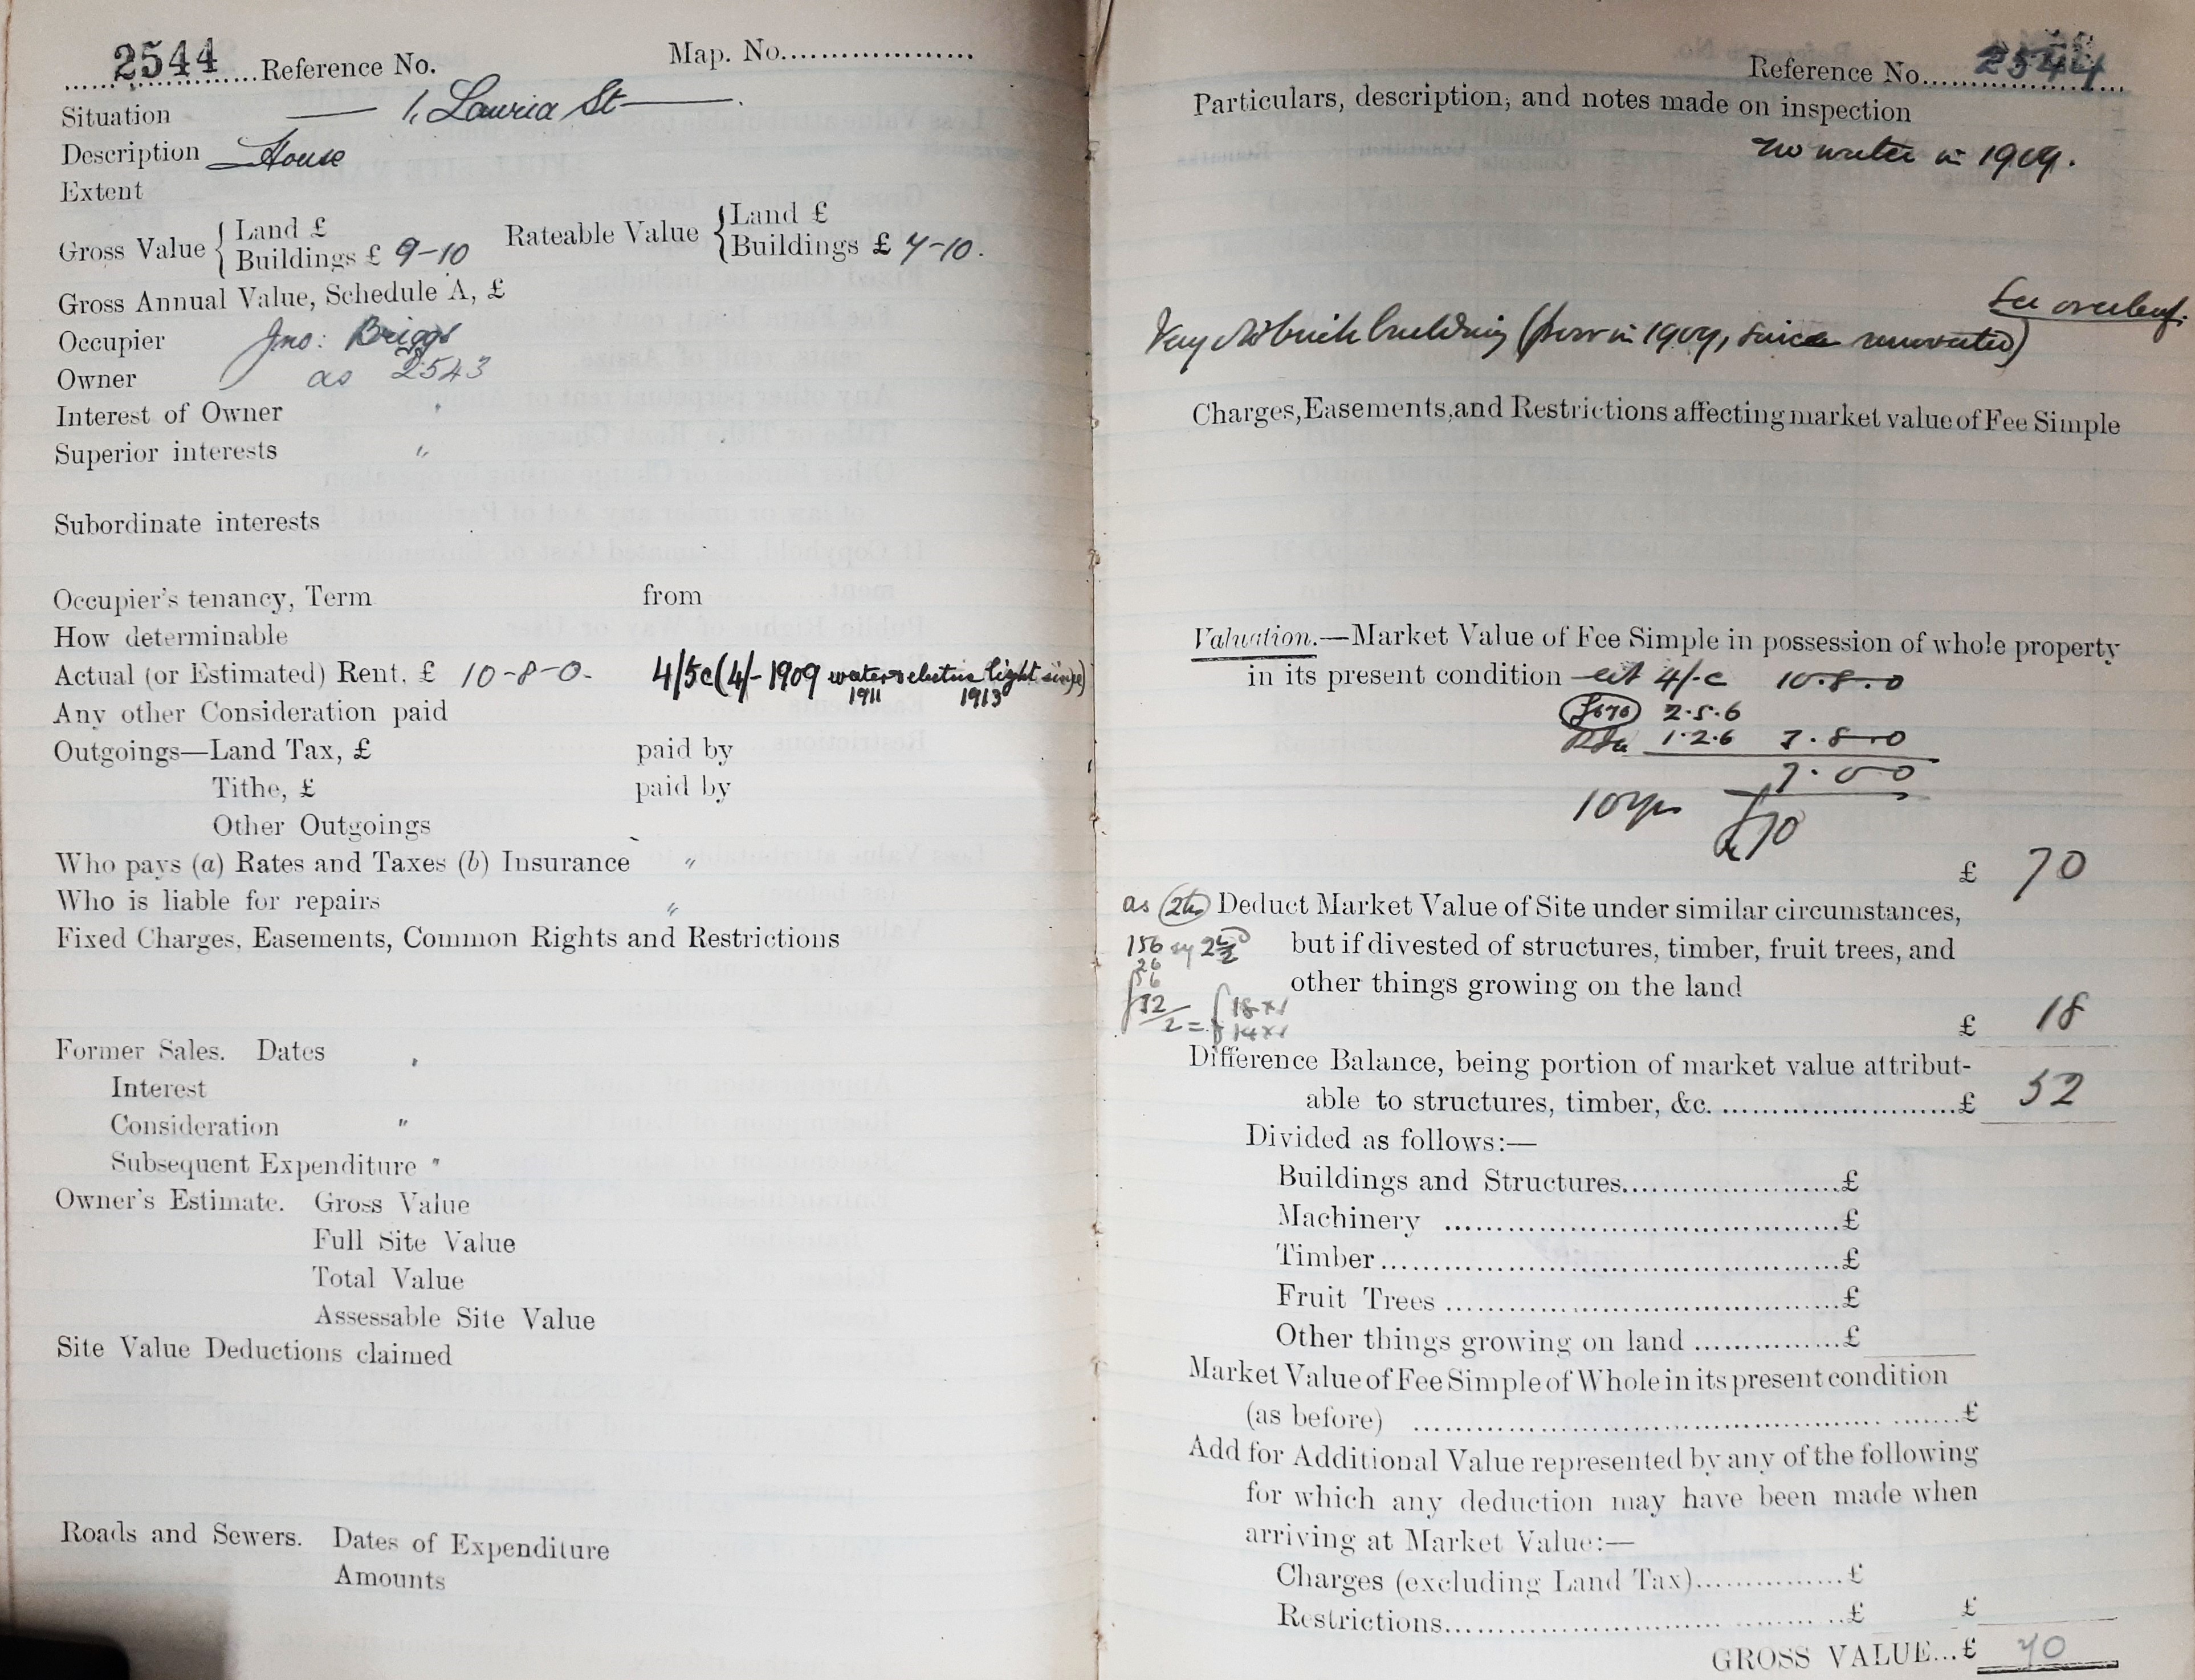 2544 Reference No. Map. No.
Situation — 1, Lauria St —.
Description House
Extent
Gross Value { Land £
Buildings £ 9-10
Rateable Value { Land £
Buildings £ 7-10.
Gross Annual Value, Schedule A, £
Occupier Jno: Briggs
Owner as 2543
Interest of Owner "
Superior interests "
Subordinate interests
Occupier's tenancy, Term from
How determinable
Actual (or Estimated) Rent. £ 10-8-0. 4/5c (4/- 1909 water & electric light since)
1911 1913
Any other Consideration paid
Outgoings—Land Tax, £ paid by
Tithe, £ paid by
Other Outgoings
Who pays (a) Rates and Taxes (b) Insurance "
Who is liable for repairs "
Fixed Charges, Easements, Common Rights and Restrictions
Former Sales. Dates
Interest
Consideration "
Subsequent Expenditure "
Owner's Estimate. Gross Value
Full Site Value
Total Value
Assessable Site Value
Site Value Deductions claimed
Roads and Sewers. Dates of Expenditure
Amounts
Reference No. 2544
Particulars, description, and notes made on inspection
no water in 1909.
See overleaf.
Very old brick building (poor in 1909, since renovated)
Charges, Easements, and Restrictions affecting market value of Fee Simple
Valuation.—Market Value of Fee Simple in possession of whole property
in its present condition 4/-c 10.8.0
2.5.6
1.2.6 3.8.0
7.0.0
10 yrs £70
£ 70
as Deduct Market Value of Site under similar circumstances,
156 but if divested of structures, timber, fruit trees, and
26
other things growing on the land
£ 18
Difference Balance, being portion of market value attribut-
able to structures, timber, &c. £ 52
Divided as follows:—
Buildings and Structures £
Machinery £
Timber £
Fruit Trees £
Other things growing on land £
Market Value of Fee Simple of Whole in its present condition
(as before) £
Add for Additional Value represented by any of the following
for which any deduction may have been made when
arriving at Market Value:—
Charges (excluding Land Tax) £
Restrictions £ £
GROSS VALUE... £ 70